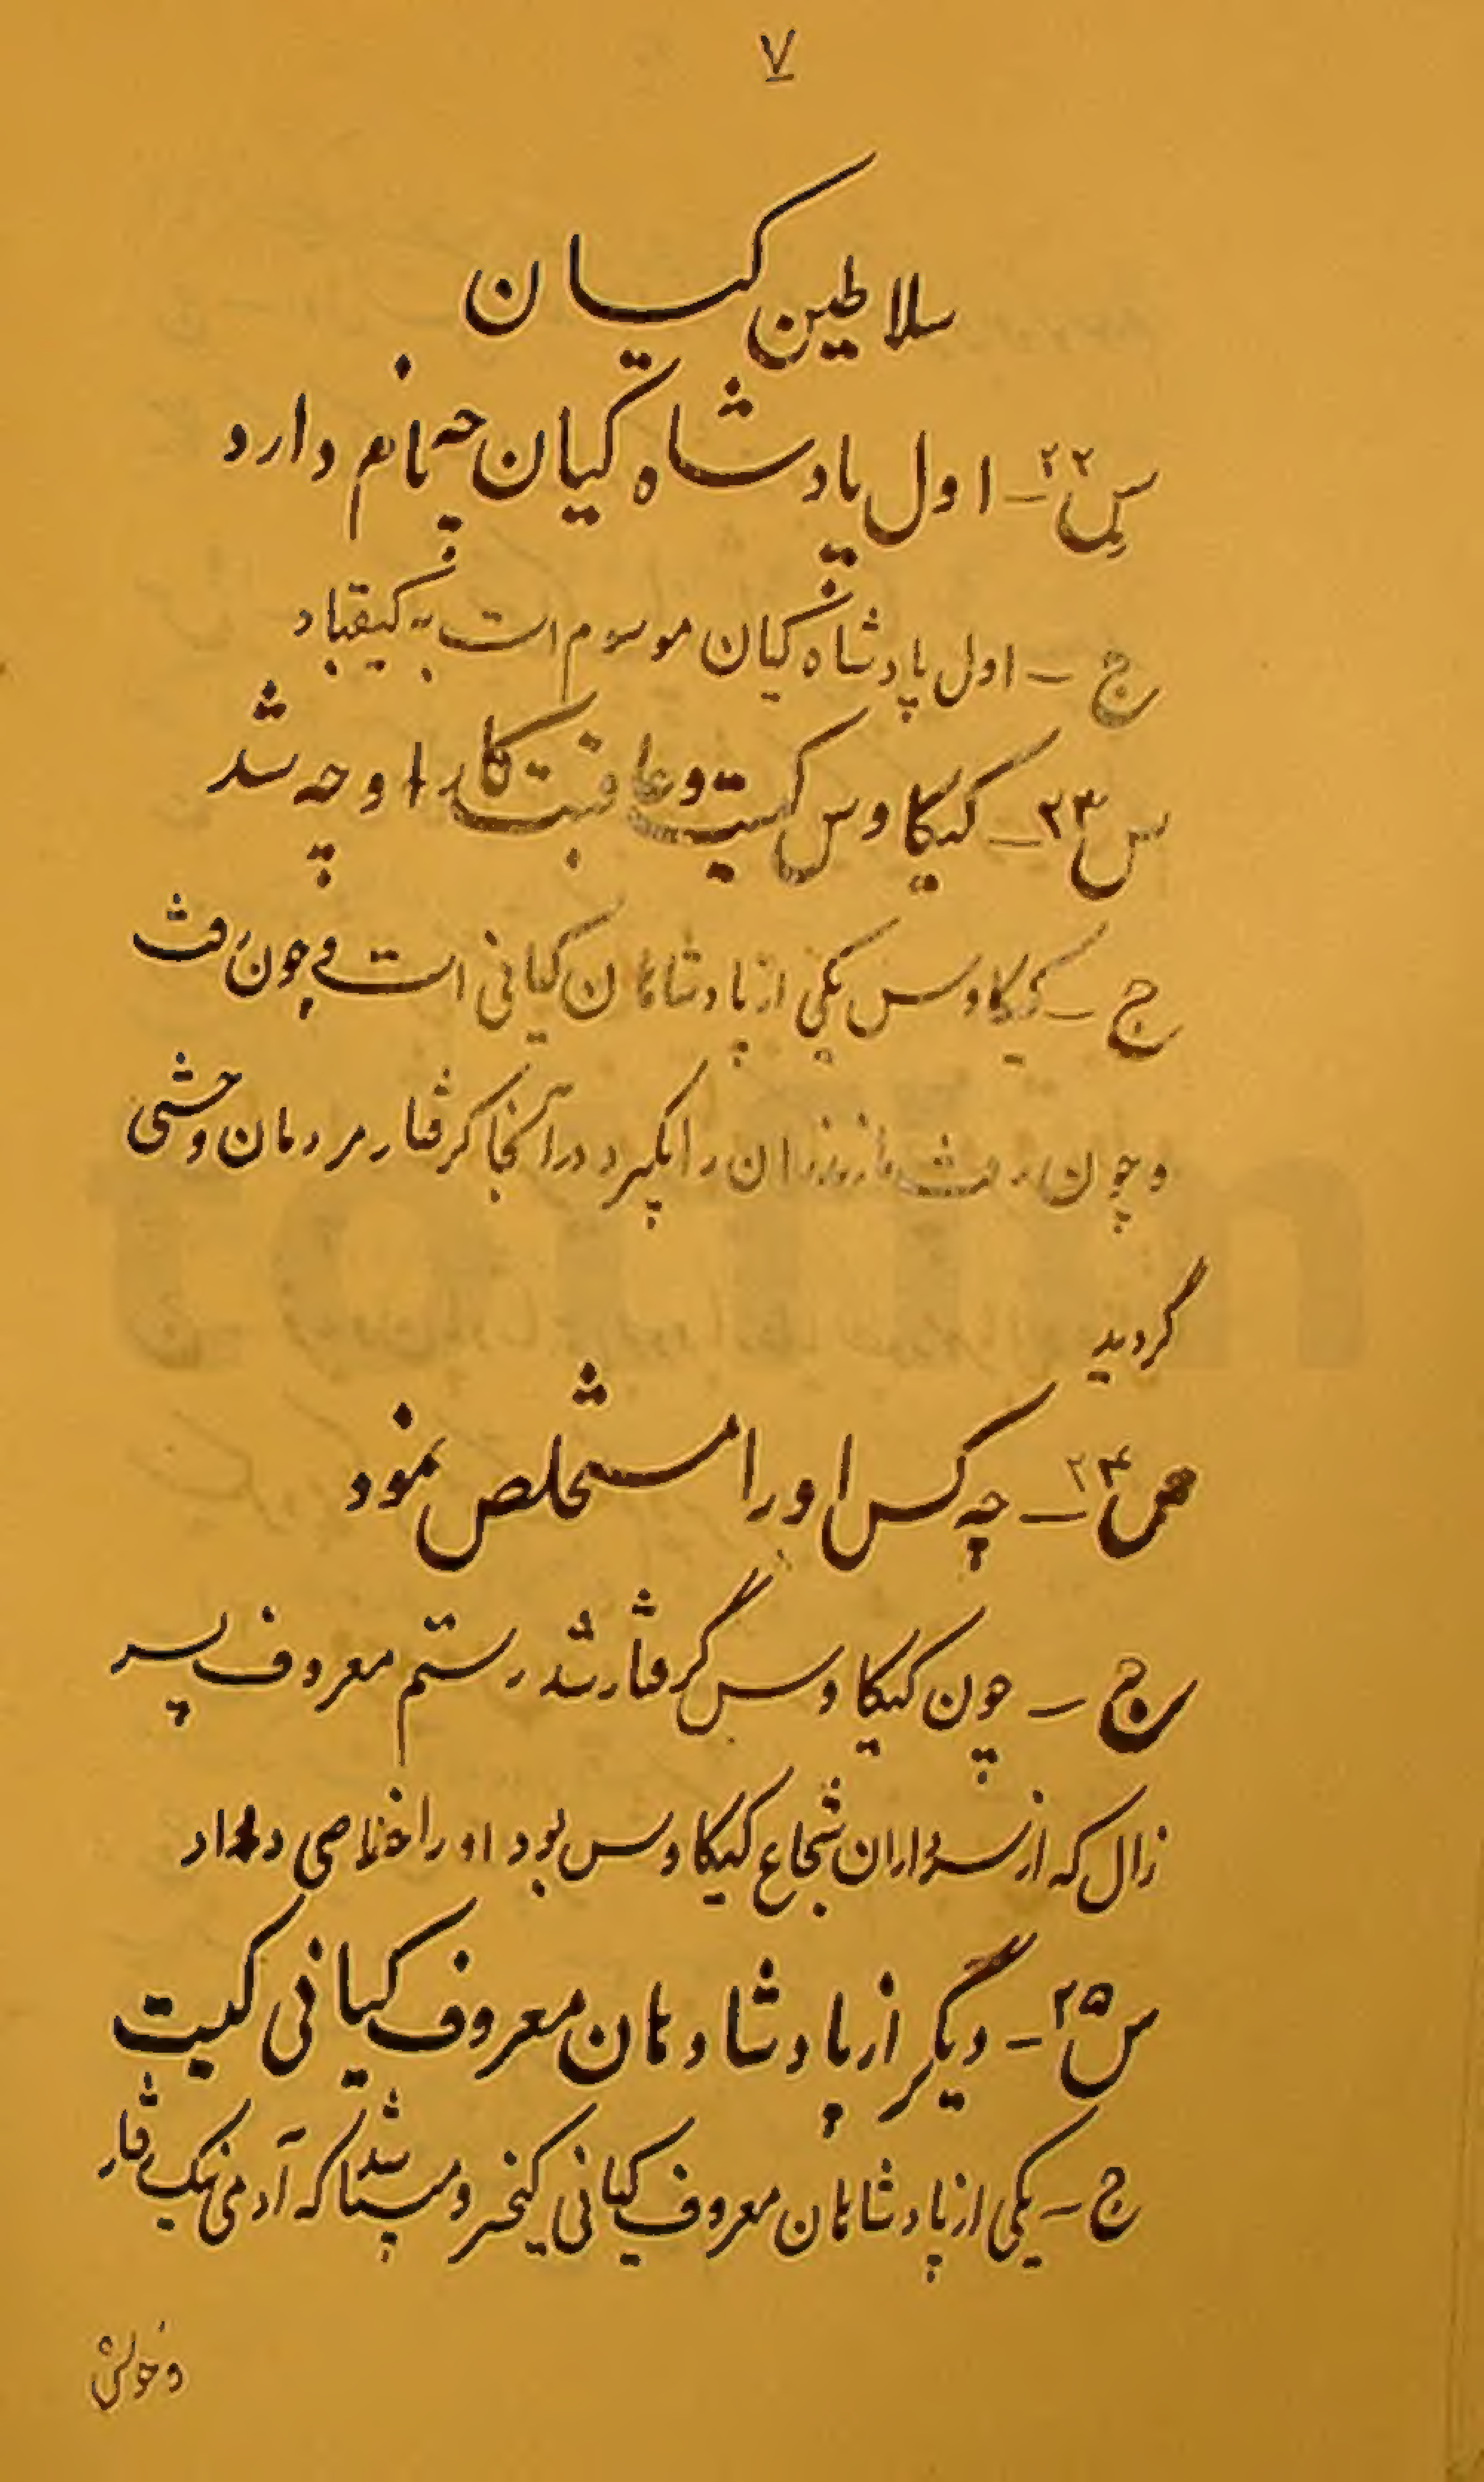 ۷
سلاطین کیان
س۲۲ـ اول پادشاه کیان چه نام دارد
ج ـ اول پادشاه کیان موسوم است به کیقباد
س۲۳ـ کیکاوس کیست و عاقبت کار او چه شد
ج ـ کیکاوس یکی از پادشاهان کیانی است و چون رفت
و چون رفت مازندران را بگیرد در آنجا گرفتار مردمان وحشی
گردید
س۲۴ـ چه کس او را مستخلص نمود
ج ـ چون کیکاوس گرفتار شد رستم معروف پسر
زال که از سرداران شجاع کیکاوس بود او را خلاصی داد
س۲۵ـ دیگر از پادشاهان معروف کیانی کیست
ج ـ یکی از پادشاهان معروف کیانی کیخسرو میباشد که آدمی نیک رفتار
و خوش